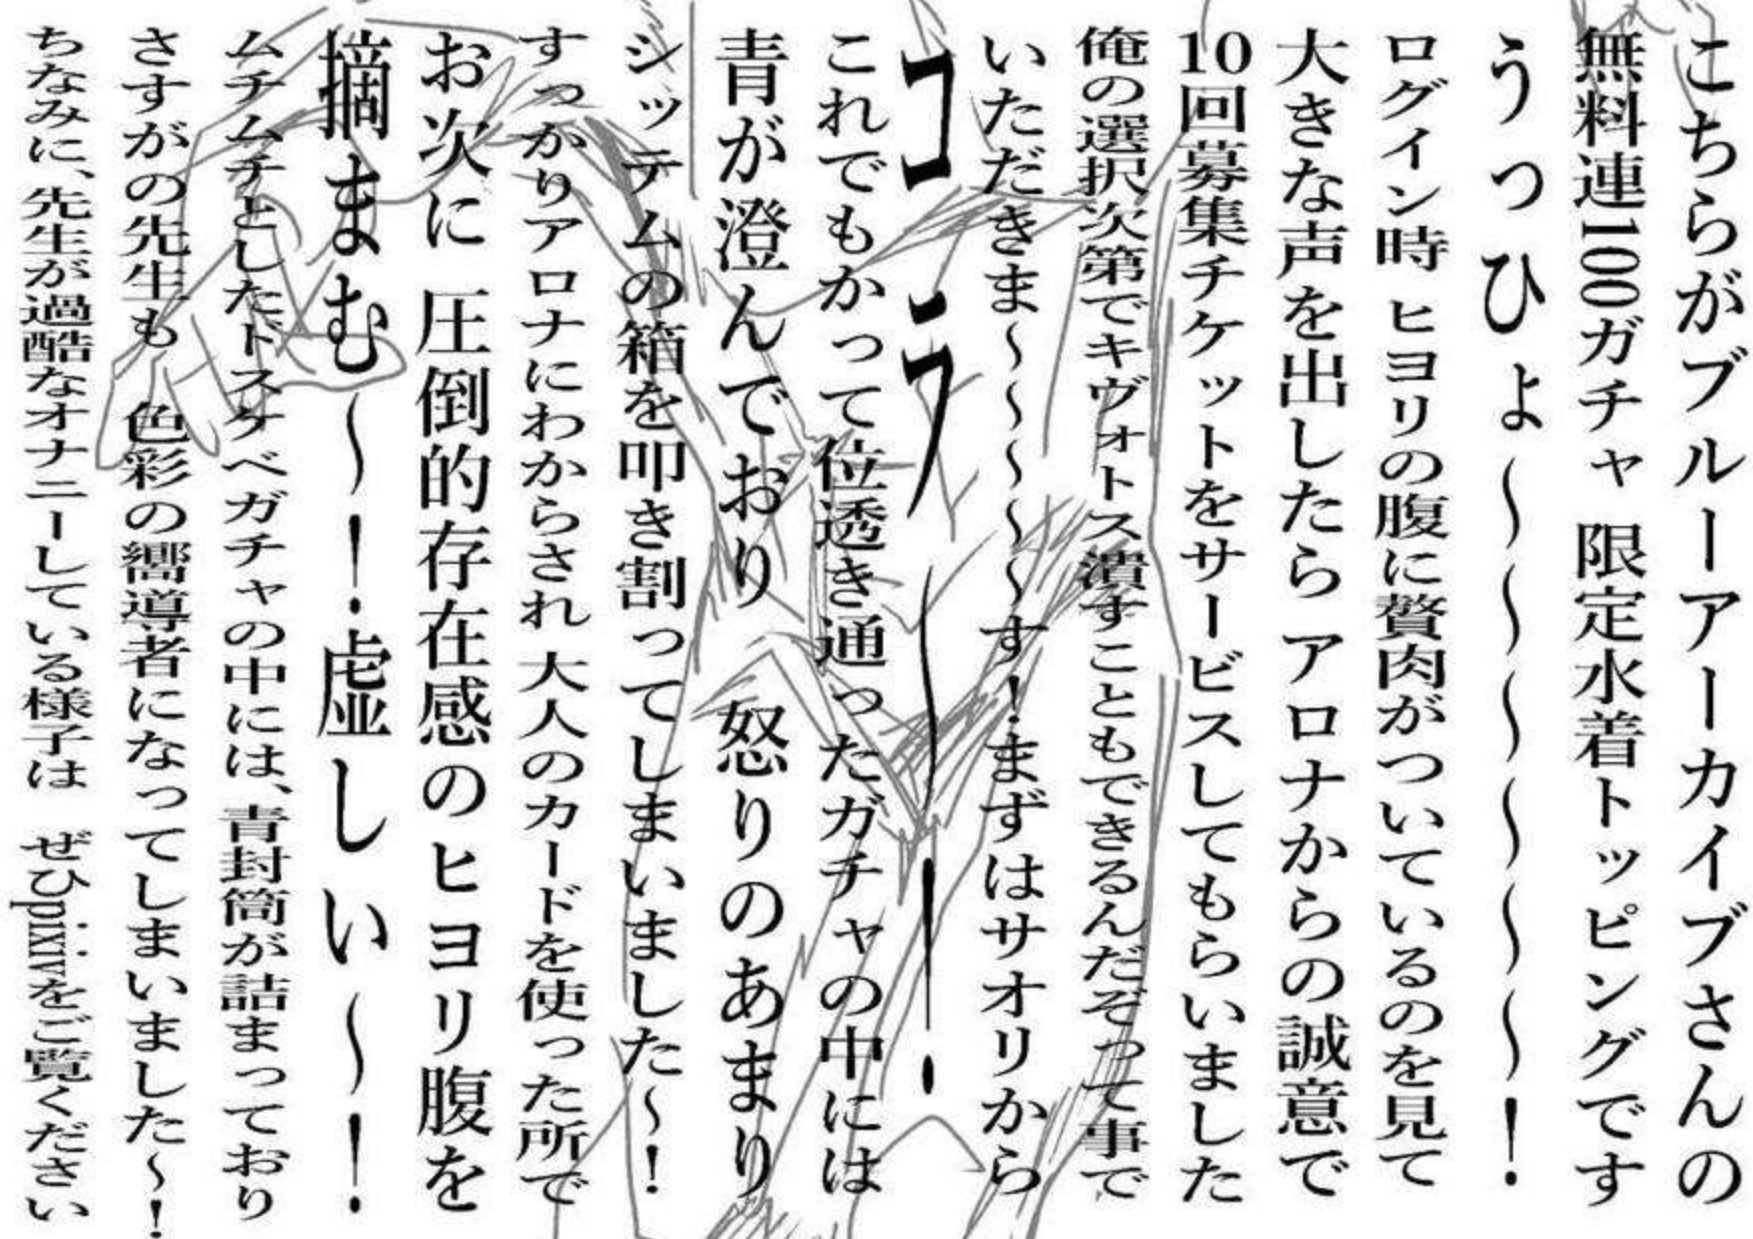 こちらがブルーアーカイブさんの
無料連100ガチャ 限定水着トッピングです
うっひょ〜〜〜〜〜〜！
ログイン時 ヒヨリの腹に贅肉がついているのを見て
大きな声を出したら アロナからの誠意で
10回募集チケットをサービスしてもらいました
俺の選択次第でキヴォトス潰すこともできるんだぞって事で
いただきま〜〜〜〜〜す！まずはサオリから
コラ〜！
これでもかって位透き通ったガチャの中には
青が澄んでおり 怒りのあまり
シッテムの箱を叩き割ってしまいました〜！
すっかりアロナにわからされ 大人のカードを使った所で
お次に 圧倒的存在感のヒヨリ腹を
摘まむ〜！虚しい〜！
ムチムチとしたドスケベガチャの中には、青封筒が詰まっており
さすがの先生も 色彩の嚮導者になってしまいました〜！
ちなみに、先生が過酷なオナニーしている様子は ぜひpixivをご覧ください